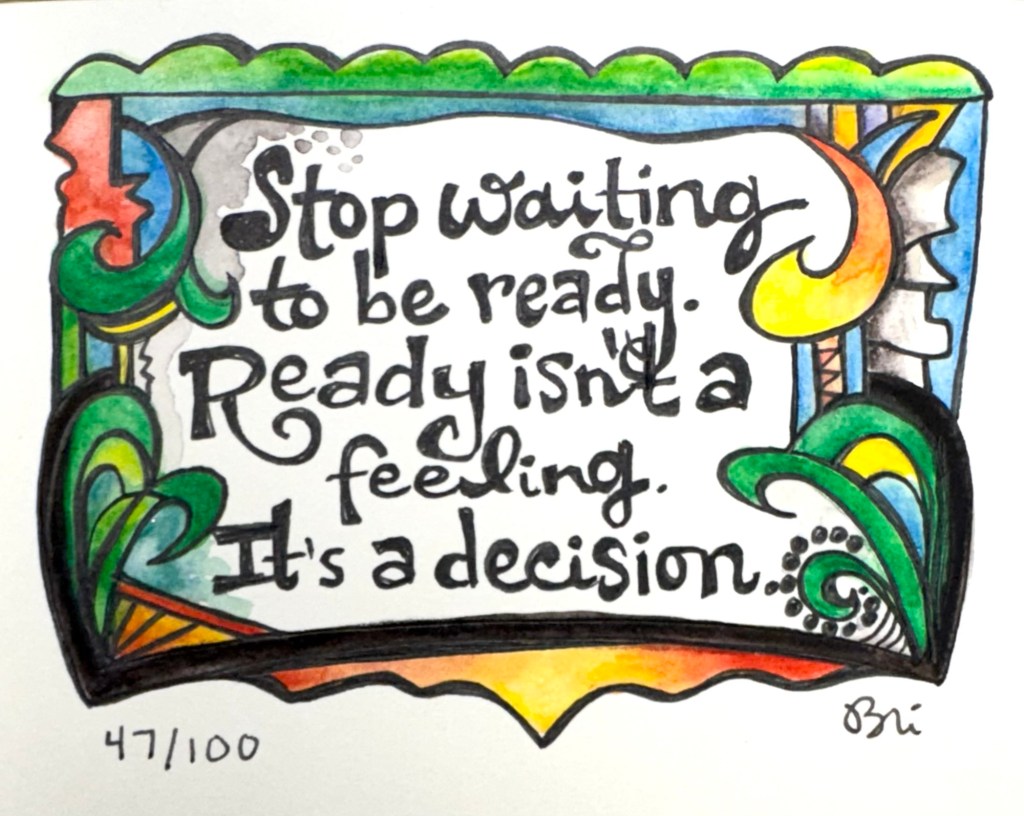 Stop waiting
to be ready.
Ready isn't a
feeling.
It's a decision.
47/100
Bri